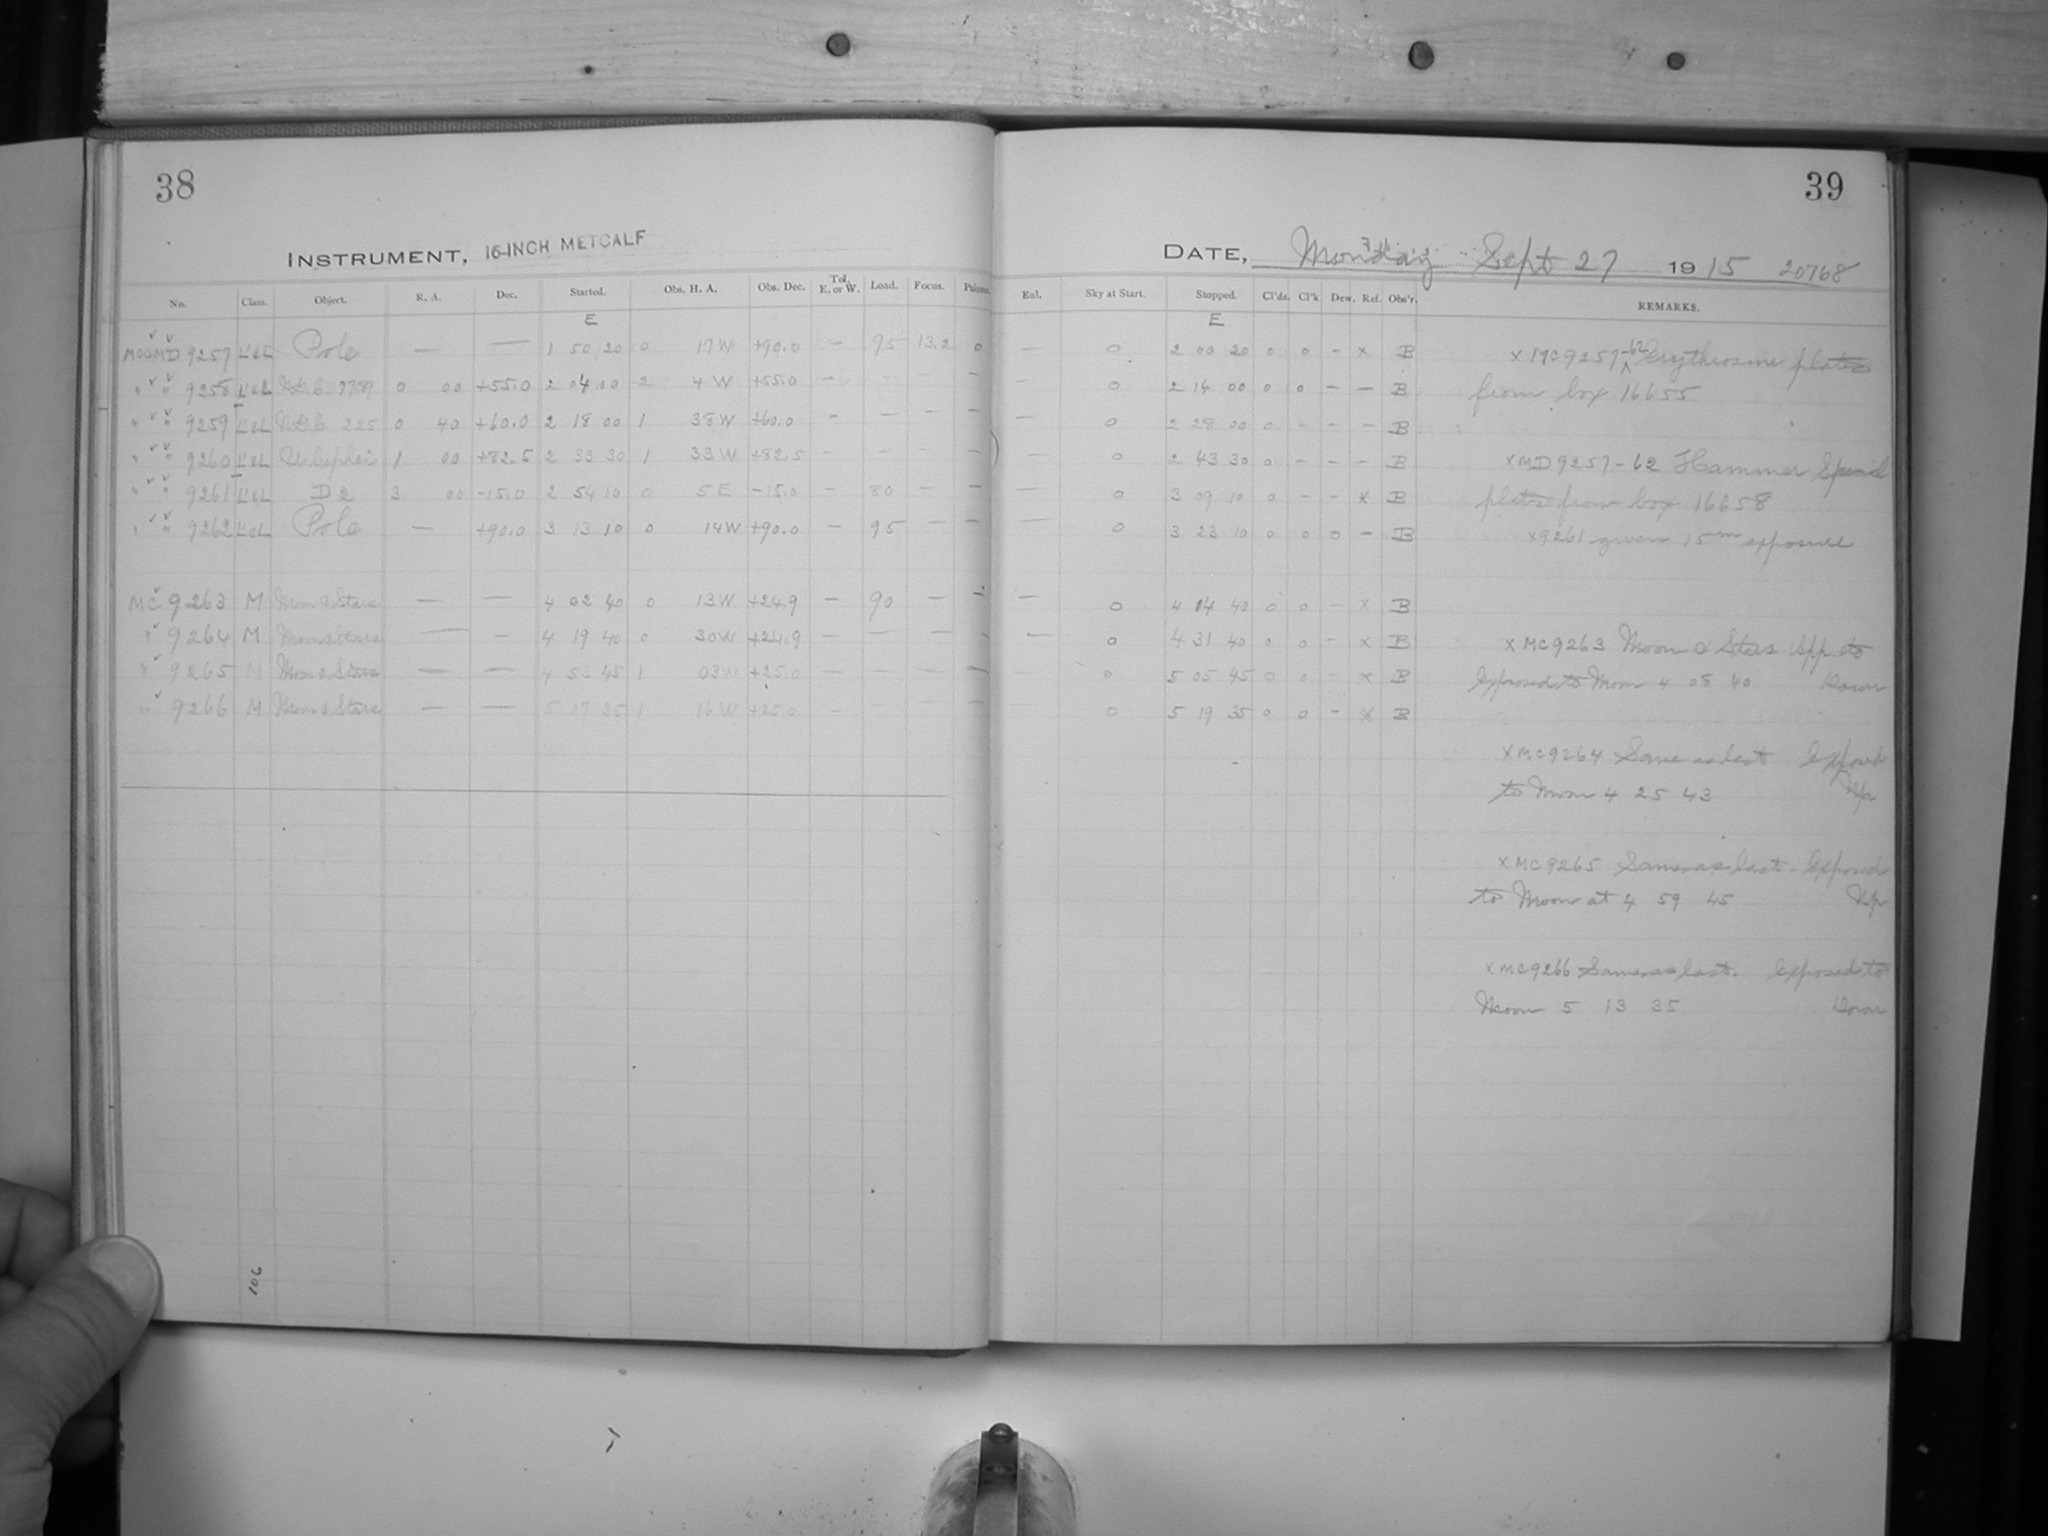 38
INSTRUMENT, 16-INCH METCALF
No. Class. Object. R. A. Dec. Started. Obs. H. A. Obs. Dec. Tel. E. or W. Load. Focus.
E
9257 Pole — — 1 50 20 0 17 W +90.0 — 95 13.2 0
" " 9258 0 00 +55.0 2 04 00 2 4 W +55.0 — — — —
" " 9259 225 0 40 +60.0 2 18 00 1 38 W +60.0 — — — —
" " 9260 U Cephei 1 00 +82.5 2 33 30 1 33 W +82.5 — — — —
" " 9261 D 2 3 00 -15.0 2 54 10 0 5 E -15.0 — 80 — —
" " 9262 Pole — +90.0 3 13 10 0 14 W +90.0 — 95 — —
MC 9263 M Moon & Stars — — 4 02 40 0 13 W +24.9 — 90 — —
" 9264 M Moon & Stars — — 4 19 40 0 30 W +24.9 — — — —
" 9265 M Moon & Stars — — 4 53 45 1 03 W +25.0 — — — —
" 9266 M Moon & Stars — — 5 35 1 16 W +25.0 — — — —
106
39
DATE, Monday Sept 27 1915 20768
Enl. Sky at Start. Stopped. Cl'ds. Cl'k Dew. Ref. Obs'r. REMARKS.
E
— 0 2 00 20 0 0 — x B
— 0 2 14 00 0 0 — — B
— 0 2 28 00 0 — — — B
— 0 2 43 30 0 — — — B
— 0 3 09 10 0 — — x B
— 0 3 23 10 0 0 0 — B
— 0 4 14 40 0 0 — x B
— 0 4 31 40 0 0 — x B
— 0 5 05 45 0 0 — x B
— 0 5 19 35 0 0 — x B
x MC9257-62 Erythrosine plates
from box 16655
x MD9257-62 Hammer Special
plates from box 16658
x 9261 given 15m exposure
x MC9263 Moon & Stars App to
Exposed to Moon 4 08 40 Down
x MC9264 Same as last
to Moon 4 25 43 Up
x MC9265 Same as last. Exposed
to Moon at 4 59 45 Up
x MC9266 Same as last. Exposed to
Moon 5 13 35 Down